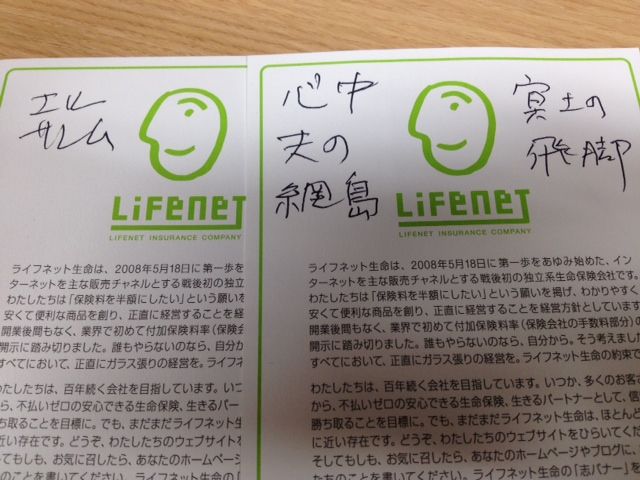 エル
サレム
LIFENET
LIFENET INSURANCE COMPANY
ライフネット生命は、2008年5月18日に第一歩を
ターネットを主な販売チャネルとする戦後初の独立
わたしたちは「保険料を半額にしたい」という願いを
安くて便利な商品を創り、正直に経営することを経
開業後間もなく、業界で初めて付加保険料率(保険会
開示に踏み切りました。誰もやらないのなら、自分か
すべてにおいて、正直にガラス張りの経営を。ライフネ
わたしたちは、百年続く会社を目指しています。いつ
から、不払いゼロの安心できる生命保険、生きるパー
勝ち取ることを目標に。でも、まだまだライフネット生
に近い存在です。どうぞ、わたしたちのウェブサイト
そしてもしも、お気に召したら、あなたのホームペー
たちのことを書いてください。ライフネット生命の「
心中
天の
網島
冥土の
飛脚
LIFENET
LIFENET INSURANCE COMPANY
ライフネット生命は、2008年5月18日に第一歩をあゆみ始めた、イン
ターネットを主な販売チャネルとする戦後初の独立系生命保険会社です。
わたしたちは「保険料を半額にしたい」という願いを掲げ、わかりやすく
安くて便利な商品を創り、正直に経営することを経営方針としています
開業後間もなく、業界で初めて付加保険料率(保険会社の手数料部分)の
開示に踏み切りました。誰もやらないのなら、自分から。そう考えました
すべてにおいて、正直にガラス張りの経営を。ライフネット生命の約束で
わたしたちは、百年続く会社を目指しています。いつか、多くのお客さ
から、不払いゼロの安心できる生命保険、生きるパートナーとして、信
勝ち取ることを目標に。でも、まだまだライフネット生命は、ほとんど
に近い存在です。どうぞ、わたしたちのウェブサイトをひらいてくだ
そしてもしも、お気に召したら、あなたのホームページやブログに、
たちのことを書いてください。ライフネット生命の「志バナー」を